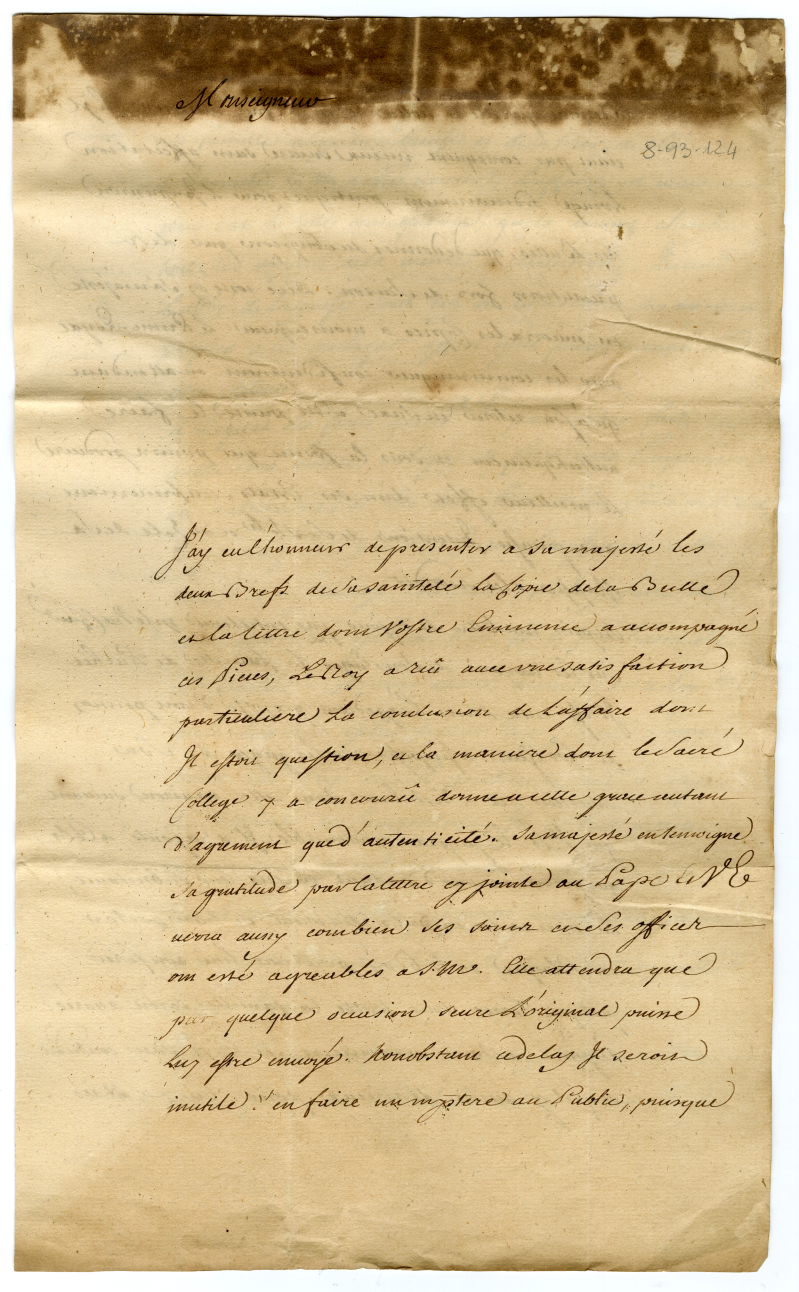 Monseigneur
8-93-124
J'ay eu l'honneur de presenter a sa majesté les
deux Brefs de sa sainteté la Copie de la Bulle
et la lettre dont Vostre Eminence a accompagné
ces Pieces, Le Roy a vû avec une satisfaction
particuliere la conclusion de l'affaire dont
Il estoit question, et la maniere dont le Sacré
College y a concouru donne a cette grace autant
d'agrement que d'autenticité. sa majesté en temoigne
sa gratitude par la lettre cy jointe au Pape et V. E
verra aussy combien ses soins et ses offices
ont esté agreables a S. M. Elle attendra que
par quelque occasion seure L'original puisse
luy estre envoyé. Nonobstant ce delay Il seroit
inutile d'en faire un mystere au Public, puisque